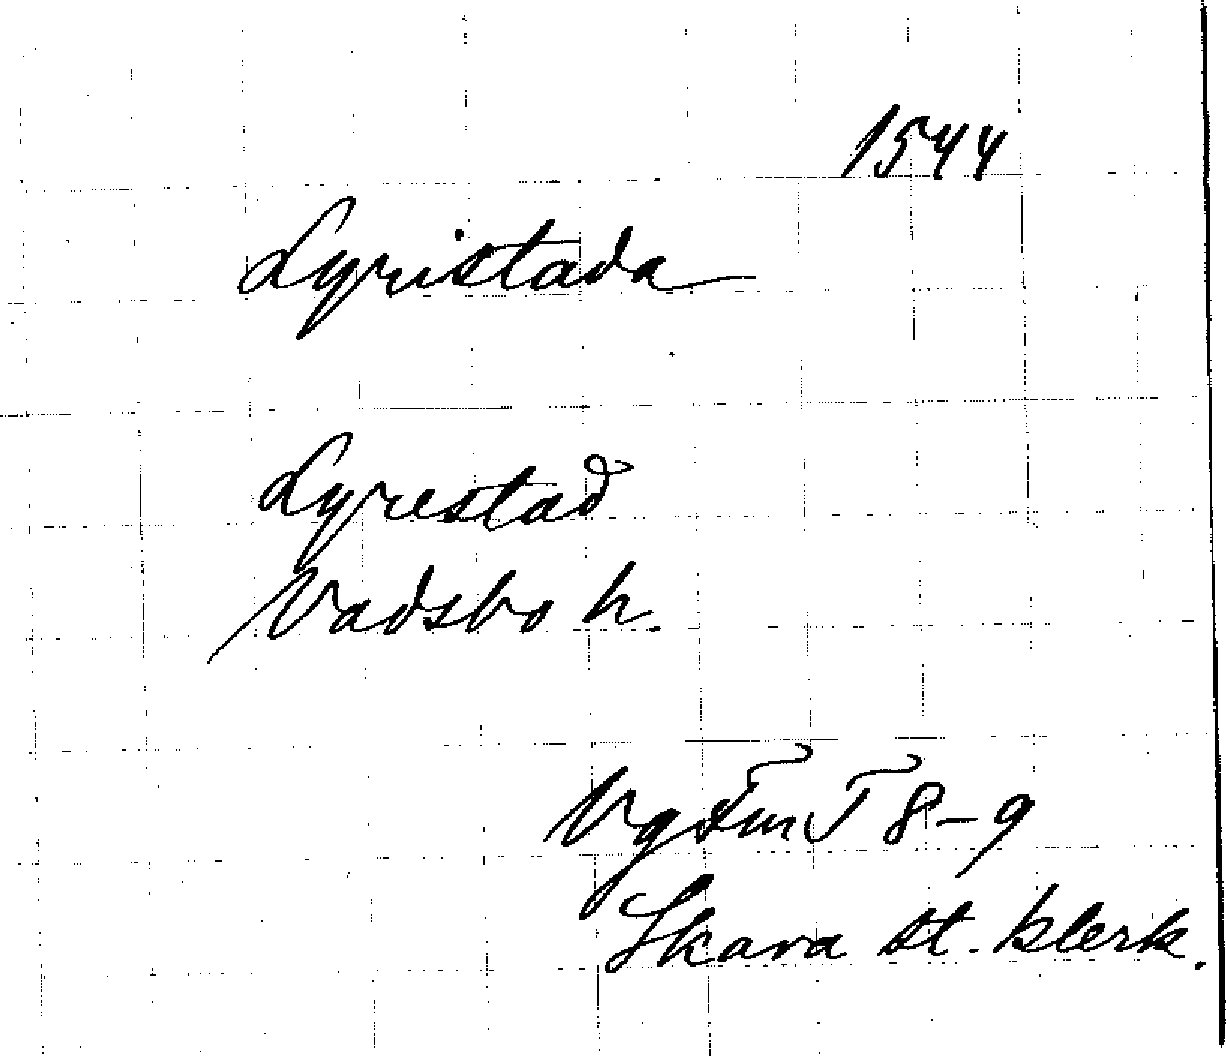 1544
Lyristada
Lyrestad
Vadsbo h.
VgFmT 8-9
Skara st. klerk.